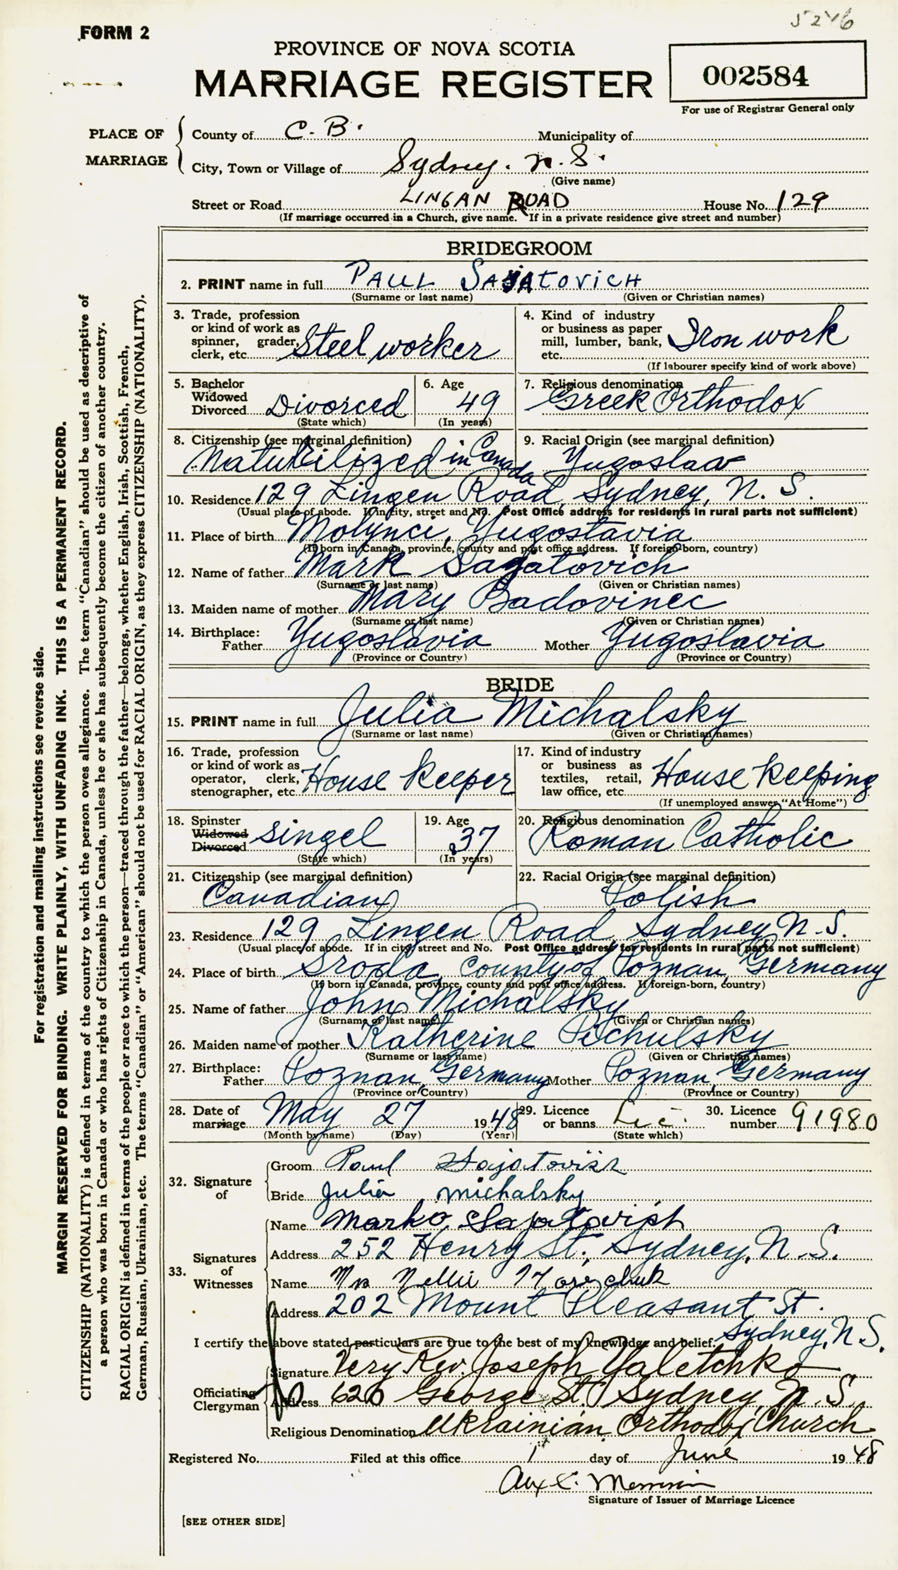 5246
FORM 2
PROVINCE OF NOVA SCOTIA
MARRIAGE REGISTER
002584
For use of Registrar General only
PLACE OF MARRIAGE
County of C. B. Municipality of
City, Town or Village of Sydney. N. S.
(Give name)
Street or Road LINGAN ROAD House No. 129
(If marriage occurred in a Church, give name. If in a private residence give street and number)
BRIDEGROOM
2. PRINT name in full PAUL SAJATOVICH
(Surname or last name) (Given or Christian names)
3. Trade, profession or kind of work as spinner, grader, clerk, etc. Steel worker
4. Kind of industry or business as paper mill, lumber, bank, etc. Iron work
(If labourer specify kind of work above)
5. Bachelor Widowed Divorced Divorced
(State which)
6. Age 49
(In years)
7. Religious denomination Greek Orthodox
8. Citizenship (see marginal definition) Natubilized in Canada
9. Racial Origin (see marginal definition) Yugoslav
10. Residence 129 Lingen Road, Sydney, N. S.
(Usual place of abode. If in city, street and No. Post Office address for residents in rural parts not sufficient)
11. Place of birth Molynci, Yugoslavia
(If born in Canada, province, county and post office address. If foreign-born, country)
12. Name of father Mark Sagatovich
(Surname or last name) (Given or Christian names)
13. Maiden name of mother Mary Badovinec
(Surname or last name) (Given or Christian names)
14. Birthplace: Father Yugoslavia Mother Yugoslavia
(Province or Country) (Province or Country)
BRIDE
15. PRINT name in full Julia Michalsky
(Surname or last name) (Given or Christian names)
16. Trade, profession or kind of work as operator, clerk, stenographer, etc. House Keeper
17. Kind of industry or business as textiles, retail, law office, etc. House Keeping
(If unemployed answer "At Home")
18. Spinster Widowed Divorced Singel
(State which)
19. Age 37
(In years)
20. Religious denomination Roman Catholic
21. Citizenship (see marginal definition) Canadian
22. Racial Origin (see marginal definition) Polish
23. Residence 129 Lingen Road, Sydney N. S.
(Usual place of abode. If in city street and No. Post Office address for residents in rural parts not sufficient)
24. Place of birth Sroda, county of Poznan Germany
(If born in Canada, province, county and post office address. If foreign-born, country)
25. Name of father John Michalsky
(Surname or last name) (Given or Christian names)
26. Maiden name of mother Katherine Pichulsky
(Surname or last name) (Given or Christian names)
27. Birthplace: Father Poznan, Germany Mother Poznan, Germany
(Province or Country) (Province or Country)
28. Date of marriage May 27 1948
(Month by name) (Day) (Year)
29. Licence or banns Lic.
(State which)
30. Licence number 91980
32. Signature of
Groom Paul Sajatovich
Bride Julia Michalsky
33. Signatures of Witnesses
Name Marko Sajatovich
Address 252 Henry St., Sydney, N. S.
Name Mrs Nellie
Address 202 Mount Pleasant St.
Sydney, N. S.
I certify the above stated particulars are true to the best of my knowledge and belief.
Officiating Clergyman
Signature Very Rev. Joseph Yaletchko
Address 620 George St., Sydney, N. S.
Religious Denomination Ukrainian Orthodox Church
Registered No. Filed at this office 1st day of June 1948
Signature of Issuer of Marriage Licence
[SEE OTHER SIDE]
For registration and mailing instructions see reverse side.
MARGIN RESERVED FOR BINDING. WRITE PLAINLY, WITH UNFADING INK. THIS IS A PERMANENT RECORD.
CITIZENSHIP (NATIONALITY) is defined in terms of the country to which the person owes allegiance. The term "Canadian" should be used as descriptive of
a person who was born in Canada or who has rights of Citizenship in Canada, unless he or she has subsequently become the citizen of another country.
RACIAL ORIGIN is defined in terms of the people or race to which the person—traced through the father—belongs, whether English, Irish, Scottish, French,
German, Russian, Ukrainian, etc. The terms "Canadian" or "American" should not be used for RACIAL ORIGIN, as they express CITIZENSHIP (NATIONALITY).